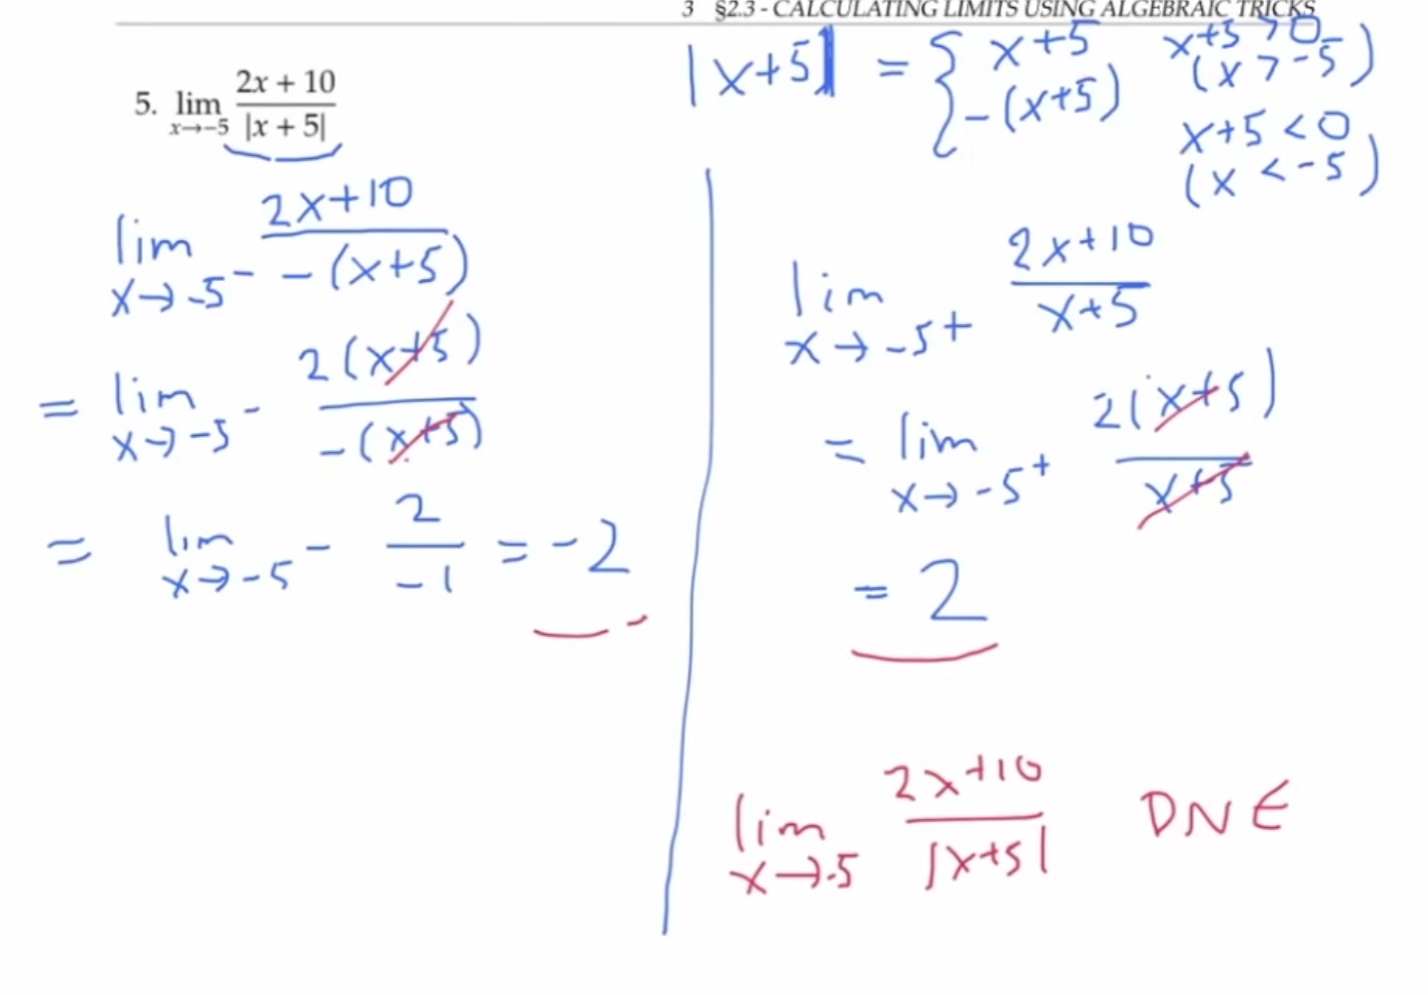 3 §2.3 - CALCULATING LIMITS USING ALGEBRAIC TRICKS
|x+5| = { x+5 x+5 > 0
(x > -5)
-(x+5) x+5 < 0
(x < -5)
5. lim x→−5 (2x + 10)/|x + 5|
lim x→-5⁻ (2x+10)/(-(x+5))
= lim x→-5⁻ 2(x+5)/(-(x+5))
= lim x→-5⁻ 2/-1 = -2
lim x→-5⁺ (2x+10)/(x+5)
= lim x→-5⁺ 2(x+5)/(x+5)
= 2
lim x→-5 (2x+10)/|x+5| DNE